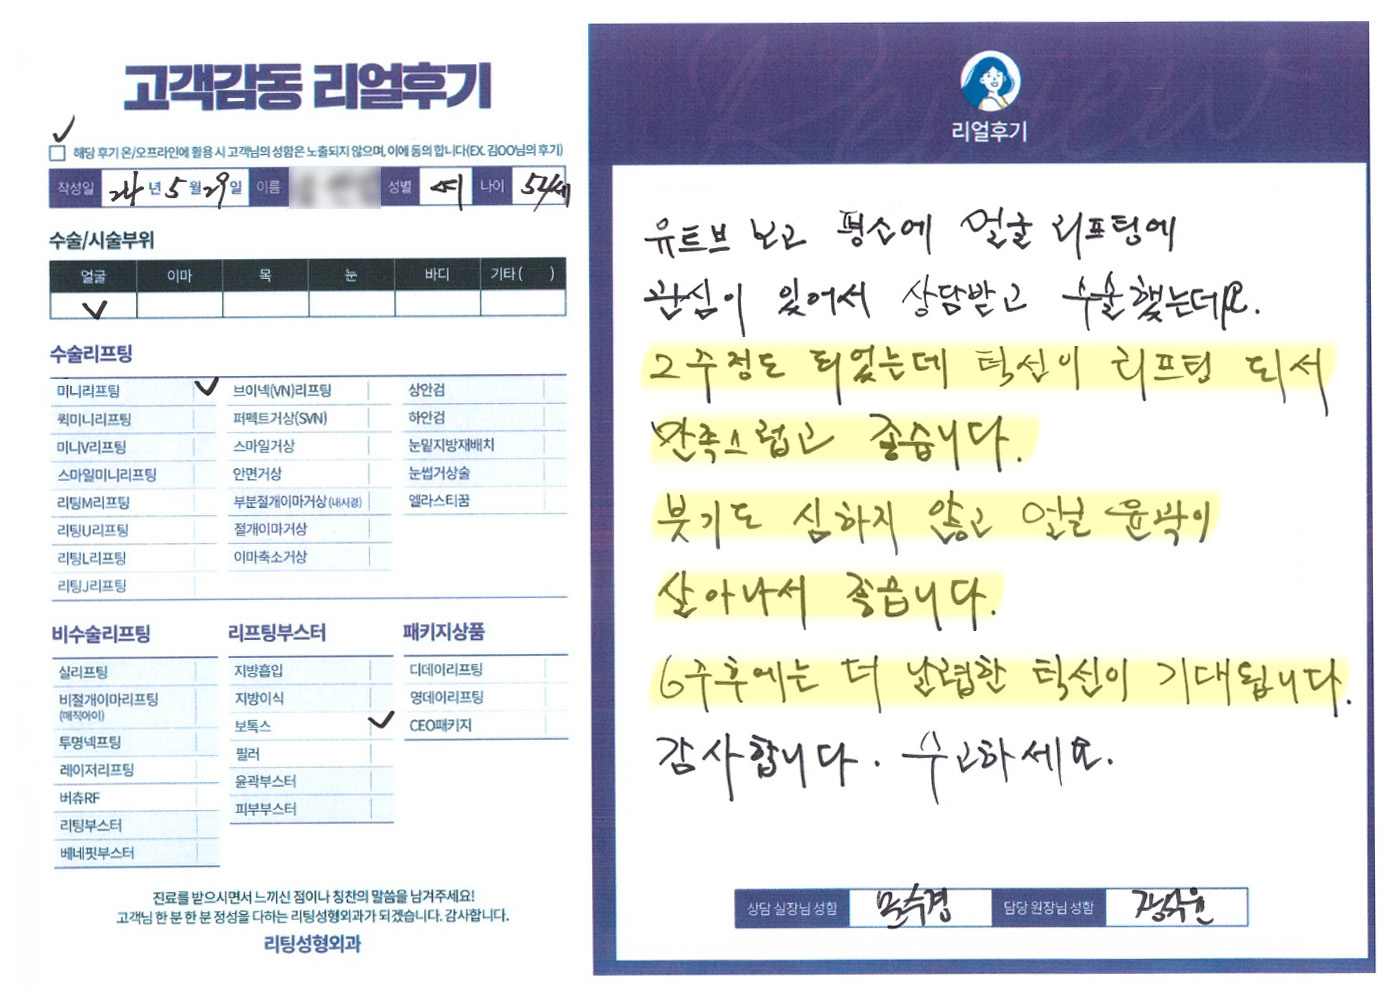 고객감동 리얼후기
해당 후기 온/오프라인에 활용 시 고객님의 성함은 노출되지 않으며, 이에 동의 합니다(EX. 김OO님의 후기)
작성일 24년 5월 29일 이름 성별 여 나이 54세
수술/시술부위
얼굴 이마 목 눈 바디 기타 ( )
수술리프팅
미니리프팅 브이넥(VN)리프팅 상안검
퀵미니리프팅 퍼펙트거상(SVN) 하안검
미니V리프팅 스마일거상 눈밑지방재배치
스마일미니리프팅 안면거상 눈썹거상술
리팅M리프팅 부분절개이마거상 (내시경) 엘라스티꿈
리팅U리프팅 절개이마거상
리팅L리프팅 이마축소거상
리팅J리프팅
비수술리프팅
실리프팅
비절개이마리프팅
(매직아이)
투명넥프팅
레이저리프팅
버츄RF
리팅부스터
베네핏부스터
리프팅부스터
지방흡입
지방이식
보톡스
필러
윤곽부스터
피부부스터
패키지상품
디데이리프팅
영데이리프팅
CEO패키지
진료를 받으시면서 느끼신 점이나 칭찬의 말씀을 남겨주세요!
고객님 한 분 한 분 정성을 다하는 리팅성형외과가 되겠습니다. 감사합니다.
리팅성형외과
Review
리얼후기
유트브 보고 평소에 얼굴 리프팅에
관심이 있어서 상담받고 수술했는데요.
2주정도 되었는데 턱선이 리프팅 되서
만족스럽고 좋습니다.
붓기도 심하지 않고 얼굴 윤곽이
살아나서 좋습니다.
6주후에는 더 날렵한 턱선이 기대됩니다.
감사합니다. 수고하세요.
상담 실장님 성함 담당 원장님 성함